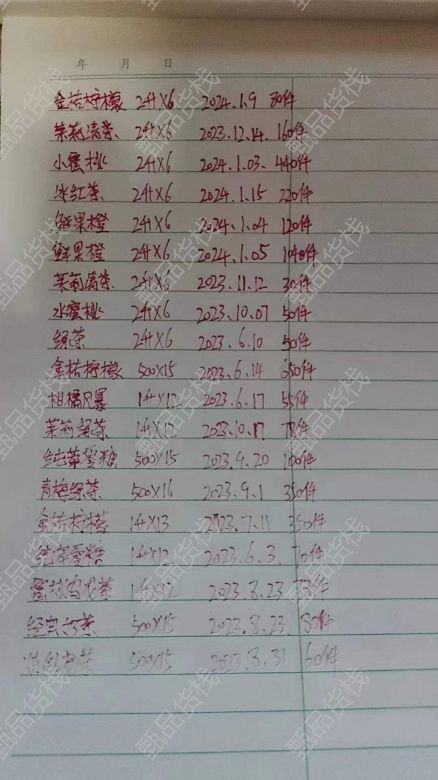 年 月 日
金桔柠檬 2升X6 2024.1.9 80件
茉莉清茶 2升X6 2023.12.14. 160件
小蜜桃 2升X6 2024.1.03. 440件
冰红茶 2升X6 2024.1.15 220件
鲜果橙 2升X6 2024.1.04 120件
鲜果橙 2升X6 2024.1.05 1040件
茉莉清茶 2升X6 2023.11.12 30件
水蜜桃 2升X6 2023.10.07 50件
绿茶 2升X6 2023.6.10 50件
金桔柠檬 500X15 2023.6.14 650件
柑橘风暴 1升X12 2023.6.17 55件
茉莉绿茶 1升X12 2023.10.17 78件
蜂蜜 500X15 2023.9.20 100件
青梅绿茶 500X16 2023.9.1 350件
金桔柠檬 1升X13 2023.7.11 350件
1升X12 2023.6.3. 70件
1升X12 2023.8.23
经典奶茶 500X15 2023.8.23. 80件
500X15 2023.8.31 60件
甄品货栈